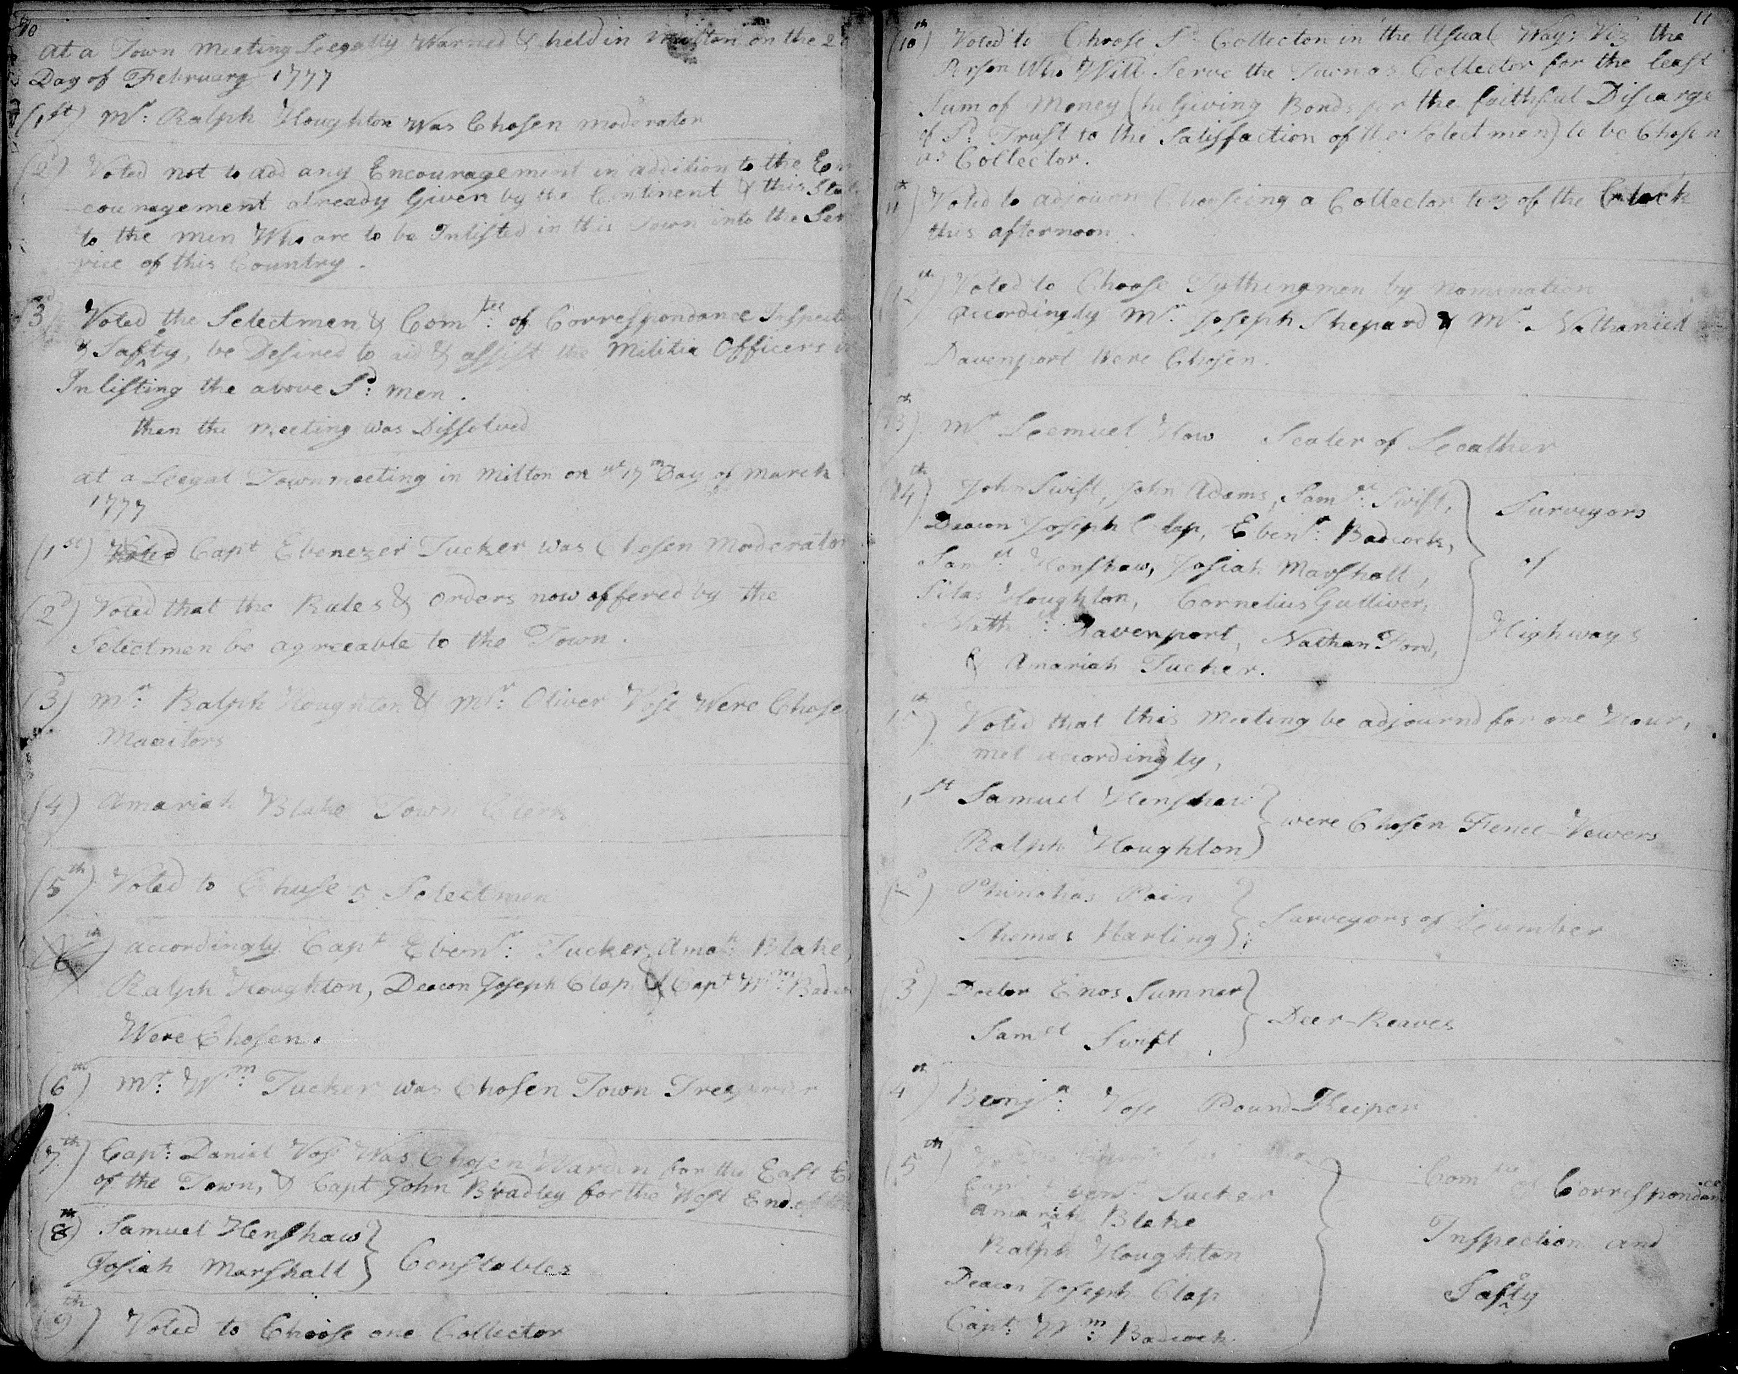 10
At a Town meeting Leegally Warned & held in Milton on the 2
Day of February 1777
(1st) Mr: Ralph Houghton Was Chosen moderator
(2d) Voted not to add any Encouragement in addition to the En
couragement already Given by the Continent & this State
to the men Who are to be Inlisted in this Town into the Ser
vice of this Country.
3d Voted the Selectmen & Comtee: of Correspondance Inspect
& Safety, be Desired to aid & assist the Militia Officers in
Inlisting the above Sd: men.
then the meeting was Dissolved
at a Leegal Townmeeting in Milton on ye 17th Day of March
1777
(1st) Voted Capt Ebenezer Tucker was Chosen Moderator
(2d) Voted that the Rules & Orders now offered by the
Selectmen be agreeable to the Town.
(3d) Mr: Ralph Houghton & Mr: Oliver Vose Were Chose
Monitors
(4) Amariah Blake Town Clerk
(5th) Voted to Chuse 5 Selectmen
(6th) accordingly Capt Ebenr: Tucker, Amah: Blake,
Ralph Houghton, Deacon Joseph Clap, & Capt Wm: Badco
Were Chosen.
(6th) Mr: Wm: Tucker was Chosen Town Treasurer
(7th) Capt: Daniel Vose Was Chosen Warden for the East E
of the Town, & Capt John Bradley for the West End of the
(8th) Samuel Henshaw
Josiah Marshall } Constables
(9th) Voted to Choose one Collector
11
(10th) Voted to Choose Sd: Collector in the Usual Way: Viz the
Person Who Will Serve the Town as Collector for the least
Sum of Money (he Giving Bonds for the faithful Discarge
of Sd: Trust to the Satisfaction of the Selectmen) to be Chosen
as Collector.
11th) Voted to adjourn Choosing a Collector to 3 of the Clock
this afternoon.
12th) Voted to Choose Tythingmen by nomination
Acordingly Mr. Joseph Shepard & Mr. Nathaniel
Davenport Were Chosen.
13th) Mr Leemuel How Sealer of Leeather
(14th) John Swift, John Adams, Saml: Swift,
Deacon Joseph Clap, Ebenr: Badcock,
Saml: Henshaw, Josiah Marshall,
Silas Houghton, Cornelius Gulliver,
Nathl: Davenport, Nathan Ford,
& Amariah Tucker. } Surveyors of Highways
15th) Voted that this Meeting be adjournd for one Hour,
met accordingly,
1st Samuel Henshaw
Ralph Houghton } were Chosen Fence-Vewers
(2d) Phinehas Pain
Thomas Harling } Surveyors of Lumber
(3d) Docter Enos Sumner
Saml Swift } Deer-Reaves
4th) Benjn: Vose Pound-Keeper
(5th)
Capt Ebenr Tucker
Amariah Blake
Ralph Houghton
Deacon Joseph Clap
Capt: Wm: Badcock. } Comtee of Correspondance
Inspection and
Safety